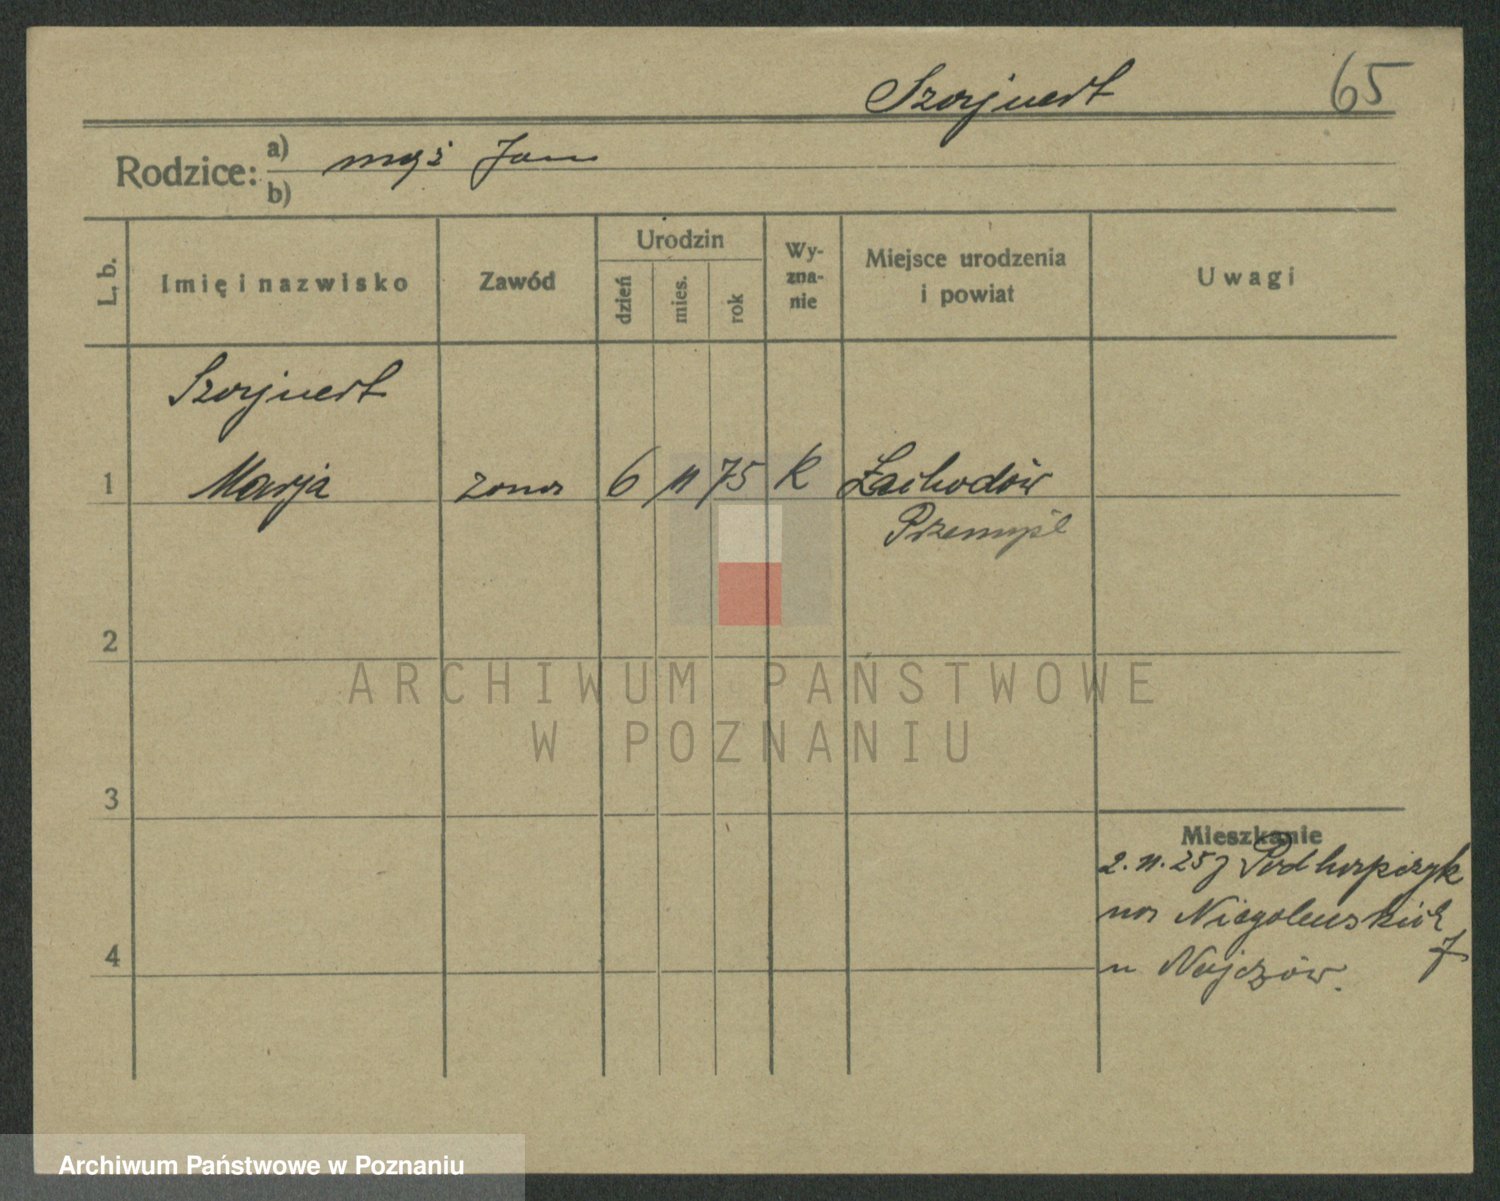 65
Rodzice: a) mąż Jan
b)
L. b.
Imię i nazwisko
Zawód
Urodzin
dzień
mies.
rok
Wy-
zna-
nie
Miejsce urodzenia
i powiat
Uwagi
1
Marja żona 6 11 75 K
Przemyśl
2
ARCHIWUM PAŃSTWOWE
W POZNANIU
3
Mieszkanie
2. 11. 25
na Niegolewskich 7
u
4
Archiwum Państwowe w Poznaniu